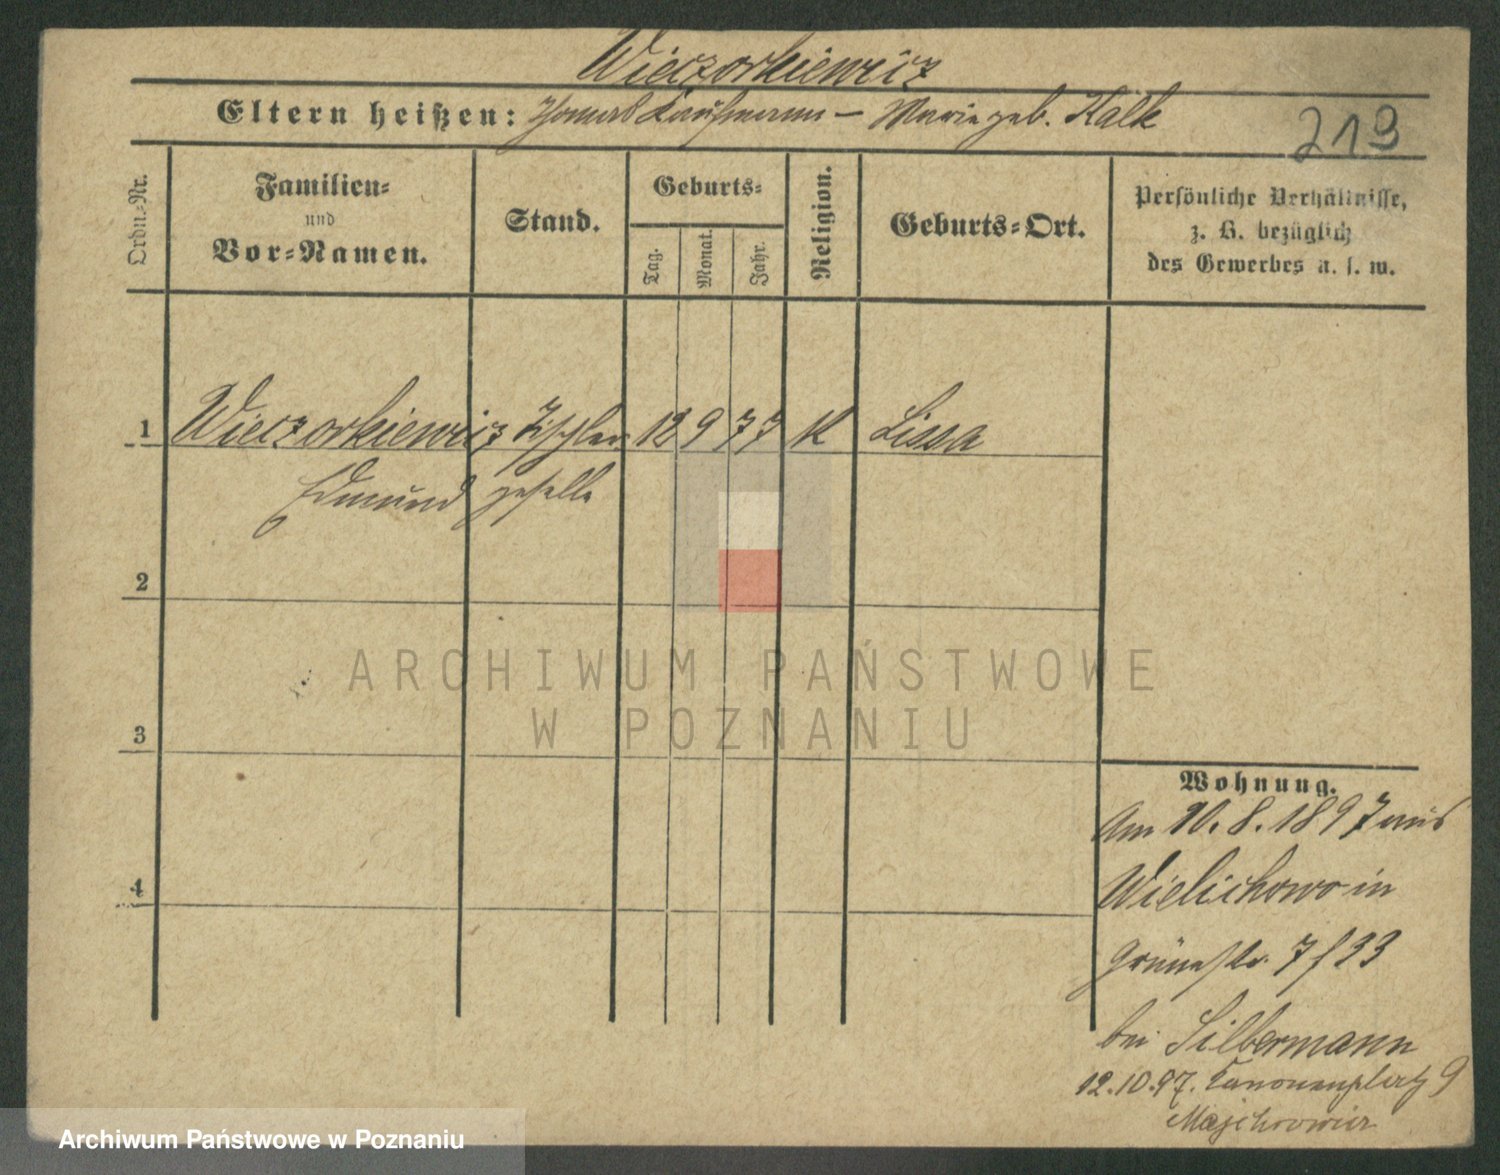 Wieczorkiewicz
Eltern heißen: Thomas Kaufmann – Marie geb. Kalk
219
Ordn.-Nr.
Familien-
und
Vor-Namen.
Stand.
Geburts-
Tag.
Monat.
Jahr.
Religion.
Geburts-Ort.
Persönliche Verhältnisse,
z. B. bezüglich
des Gewerbes u. s. w.
1 Wieczorkiewicz Tischler 12 9 77 K Lissa
Edmund geselle
2
ARCHIWUM PAŃSTWOWE
W POZNANIU
3
4
Wohnung.
Am 10. 8. 1897 aus
Wielichowo in
Grünestr. 7
bei Silbermann
12.10.97. Kanonenplatz 9
Archiwum Państwowe w Poznaniu